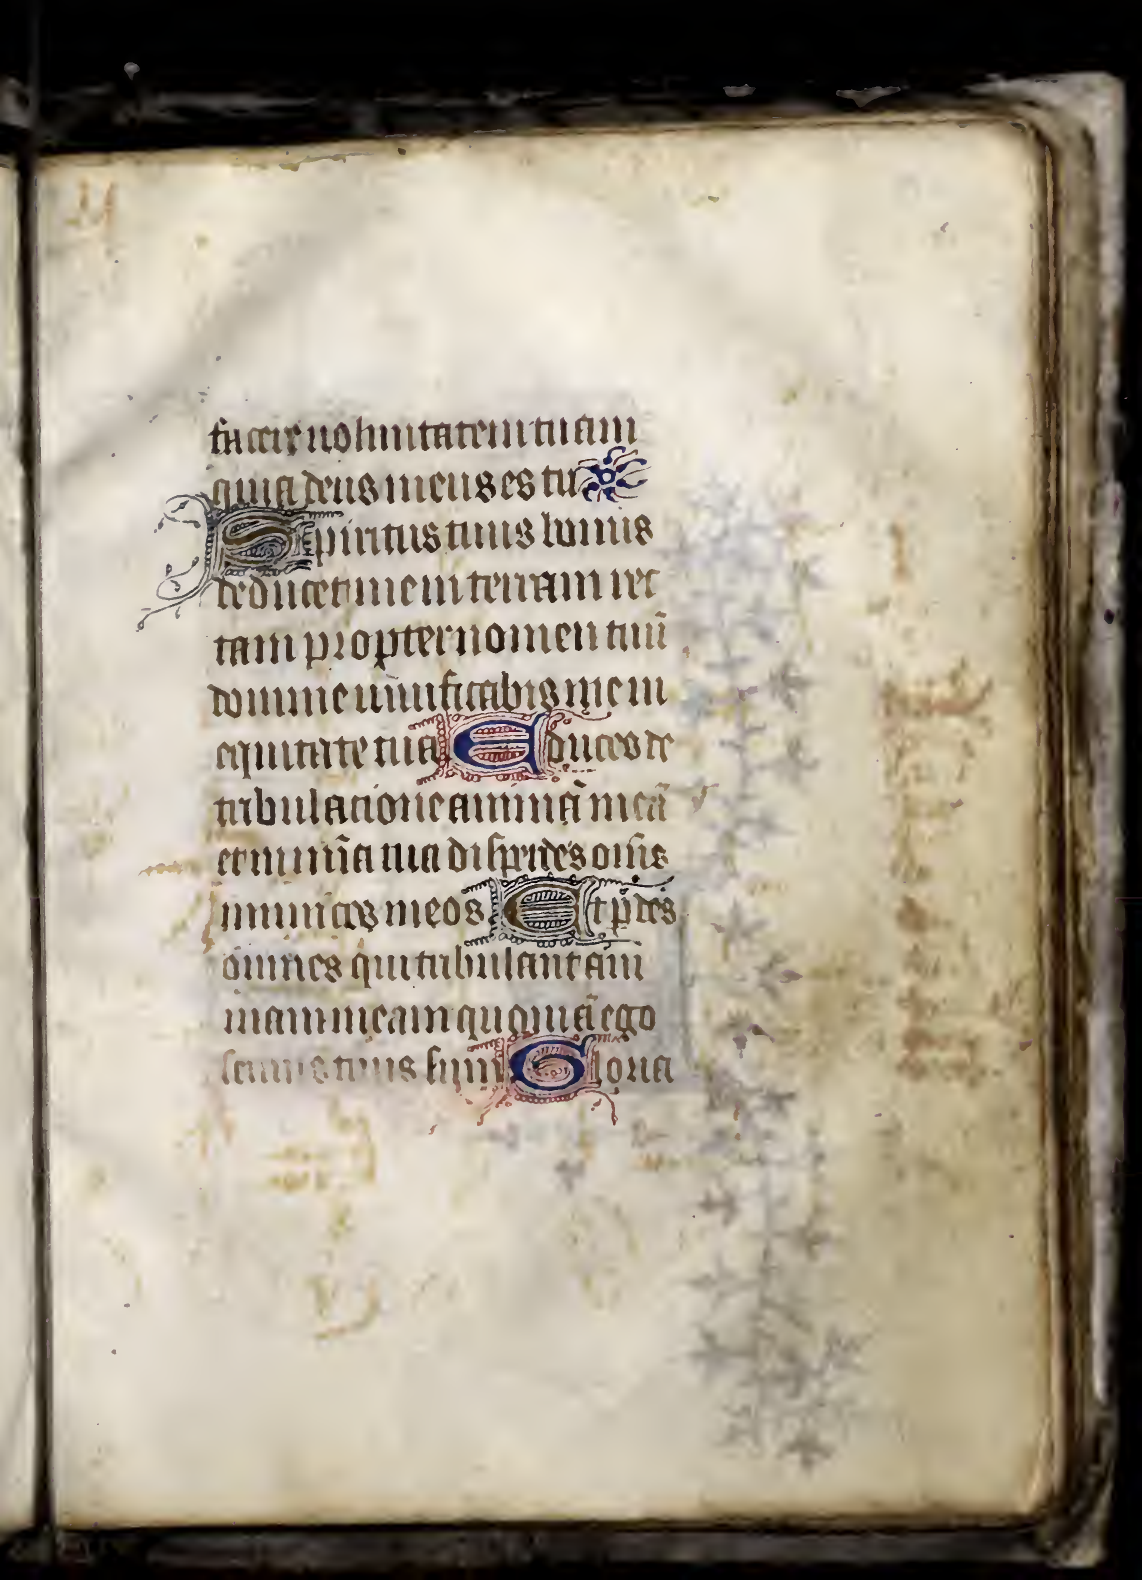 facere uoluntatem tuam
quia deus meus es tu
Spiritus tuus bonus
deducet me in terram rec
tam propter nomen tuū
domine uiuificabis me in
equitate tua Educes de
tribulacione animā meā
et in mīa tua disperdes om̄s
inimicos meos Et ꝑdes
omnes qui tribulant ani
mam meam quoniā ego
seruus tuus sum Gloria